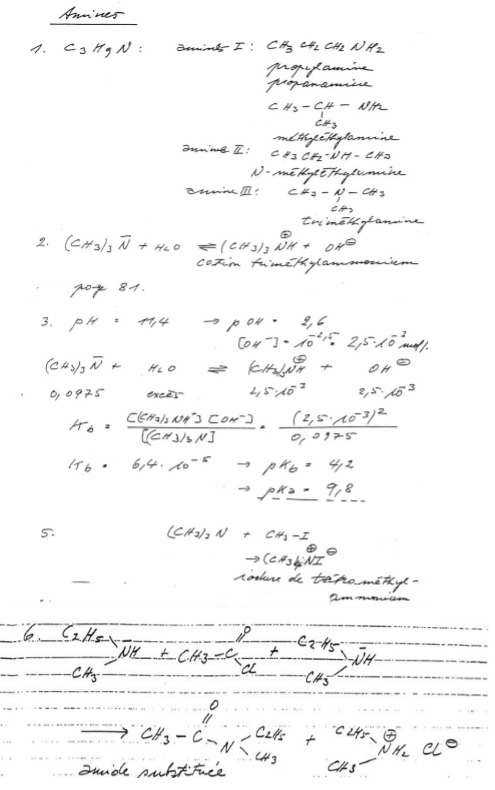 Amines
1. C3H9N : amines I : CH3 CH2 CH2 NH2
propylamine
propanamine
CH3 – CH – NH2
CH3
méthyléthylamine
amine II : CH3 CH2-NH-CH3
N-méthyléthylamine
amine III : CH3 – N – CH3
CH3
triméthylamine
2. (CH3)3 N̄ + H2O ⇌ (CH3)3 NH⊕ + OH⊖
cation triméthylammonium
pag 81.
3. pH = 11,4 → pOH = 2,6
[OH⁻] = 10^-2,5 = 2,5·10^-3 mol/l
(CH3)3 N̄ + H2O ⇌ (CH3)3NH⊕ + OH⊖
0,0975 excès 2,5·10^-3 2,5·10^-3
Kb = [(CH3)3NH⁺] [OH⁻] / [(CH3)3N] = (2,5·10^-3)² / 0,0975
Kb = 6,4·10^-5 → pKb = 4,2
→ pKa = 9,8
5. (CH3)3 N + CH3-I
→ (CH3)4N⊕I⊖
iodure de tétraméthyl-
ammonium
6. C2H5 NH CH3 + CH3-C O Cl + C2H5 NH CH3
→ CH3 – C O N C2H5 CH3 + C2H5 CH3 NH2⊕ Cl⊖
amide substituée